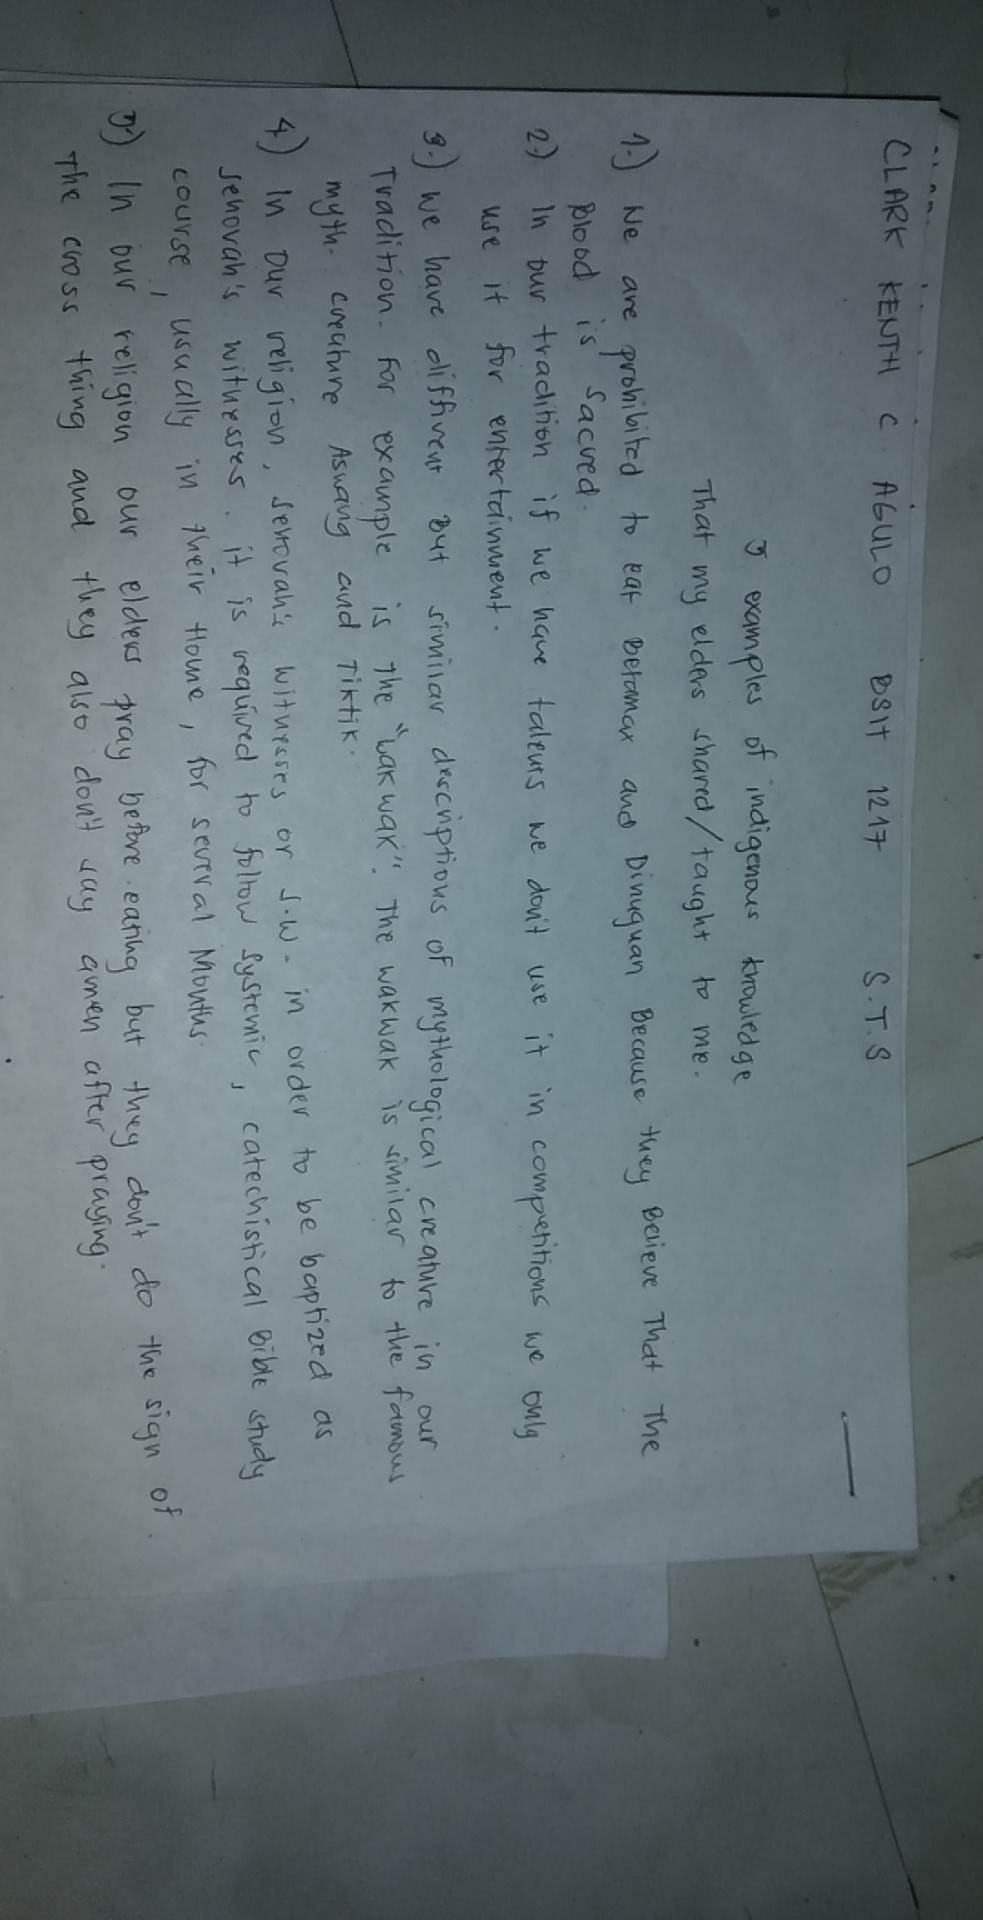 CLARK KENTH C AGULO BSIT 1217 S.T.S
5 examples of indigenous knowledge
That my elders shared/taught to me.
1.) We are prohibited to eat Betamax and Dinuguan Because they Believe That The
Blood is Sacred.
2.) In our tradition if we have talents we don't use it in competitions we only
use it for entertainment.
3.) we have diffirent But similar descriptions of mythological creature in our
Tradition. For example is The "wakwak". The wakwak is similar to the famous
myth. creature Aswang and Tiktik.
4.) In our religion, Jehovah's witnesses or J.W. in order to be baptized as
Jehovah's witnesses. it is required to follow systemic, catechistical Bible study
course, usually in their Home, for several Months.
5.) In our religion our elders pray before eating but they don't do the sign of
The cross thing and they also don't say amen after praying.